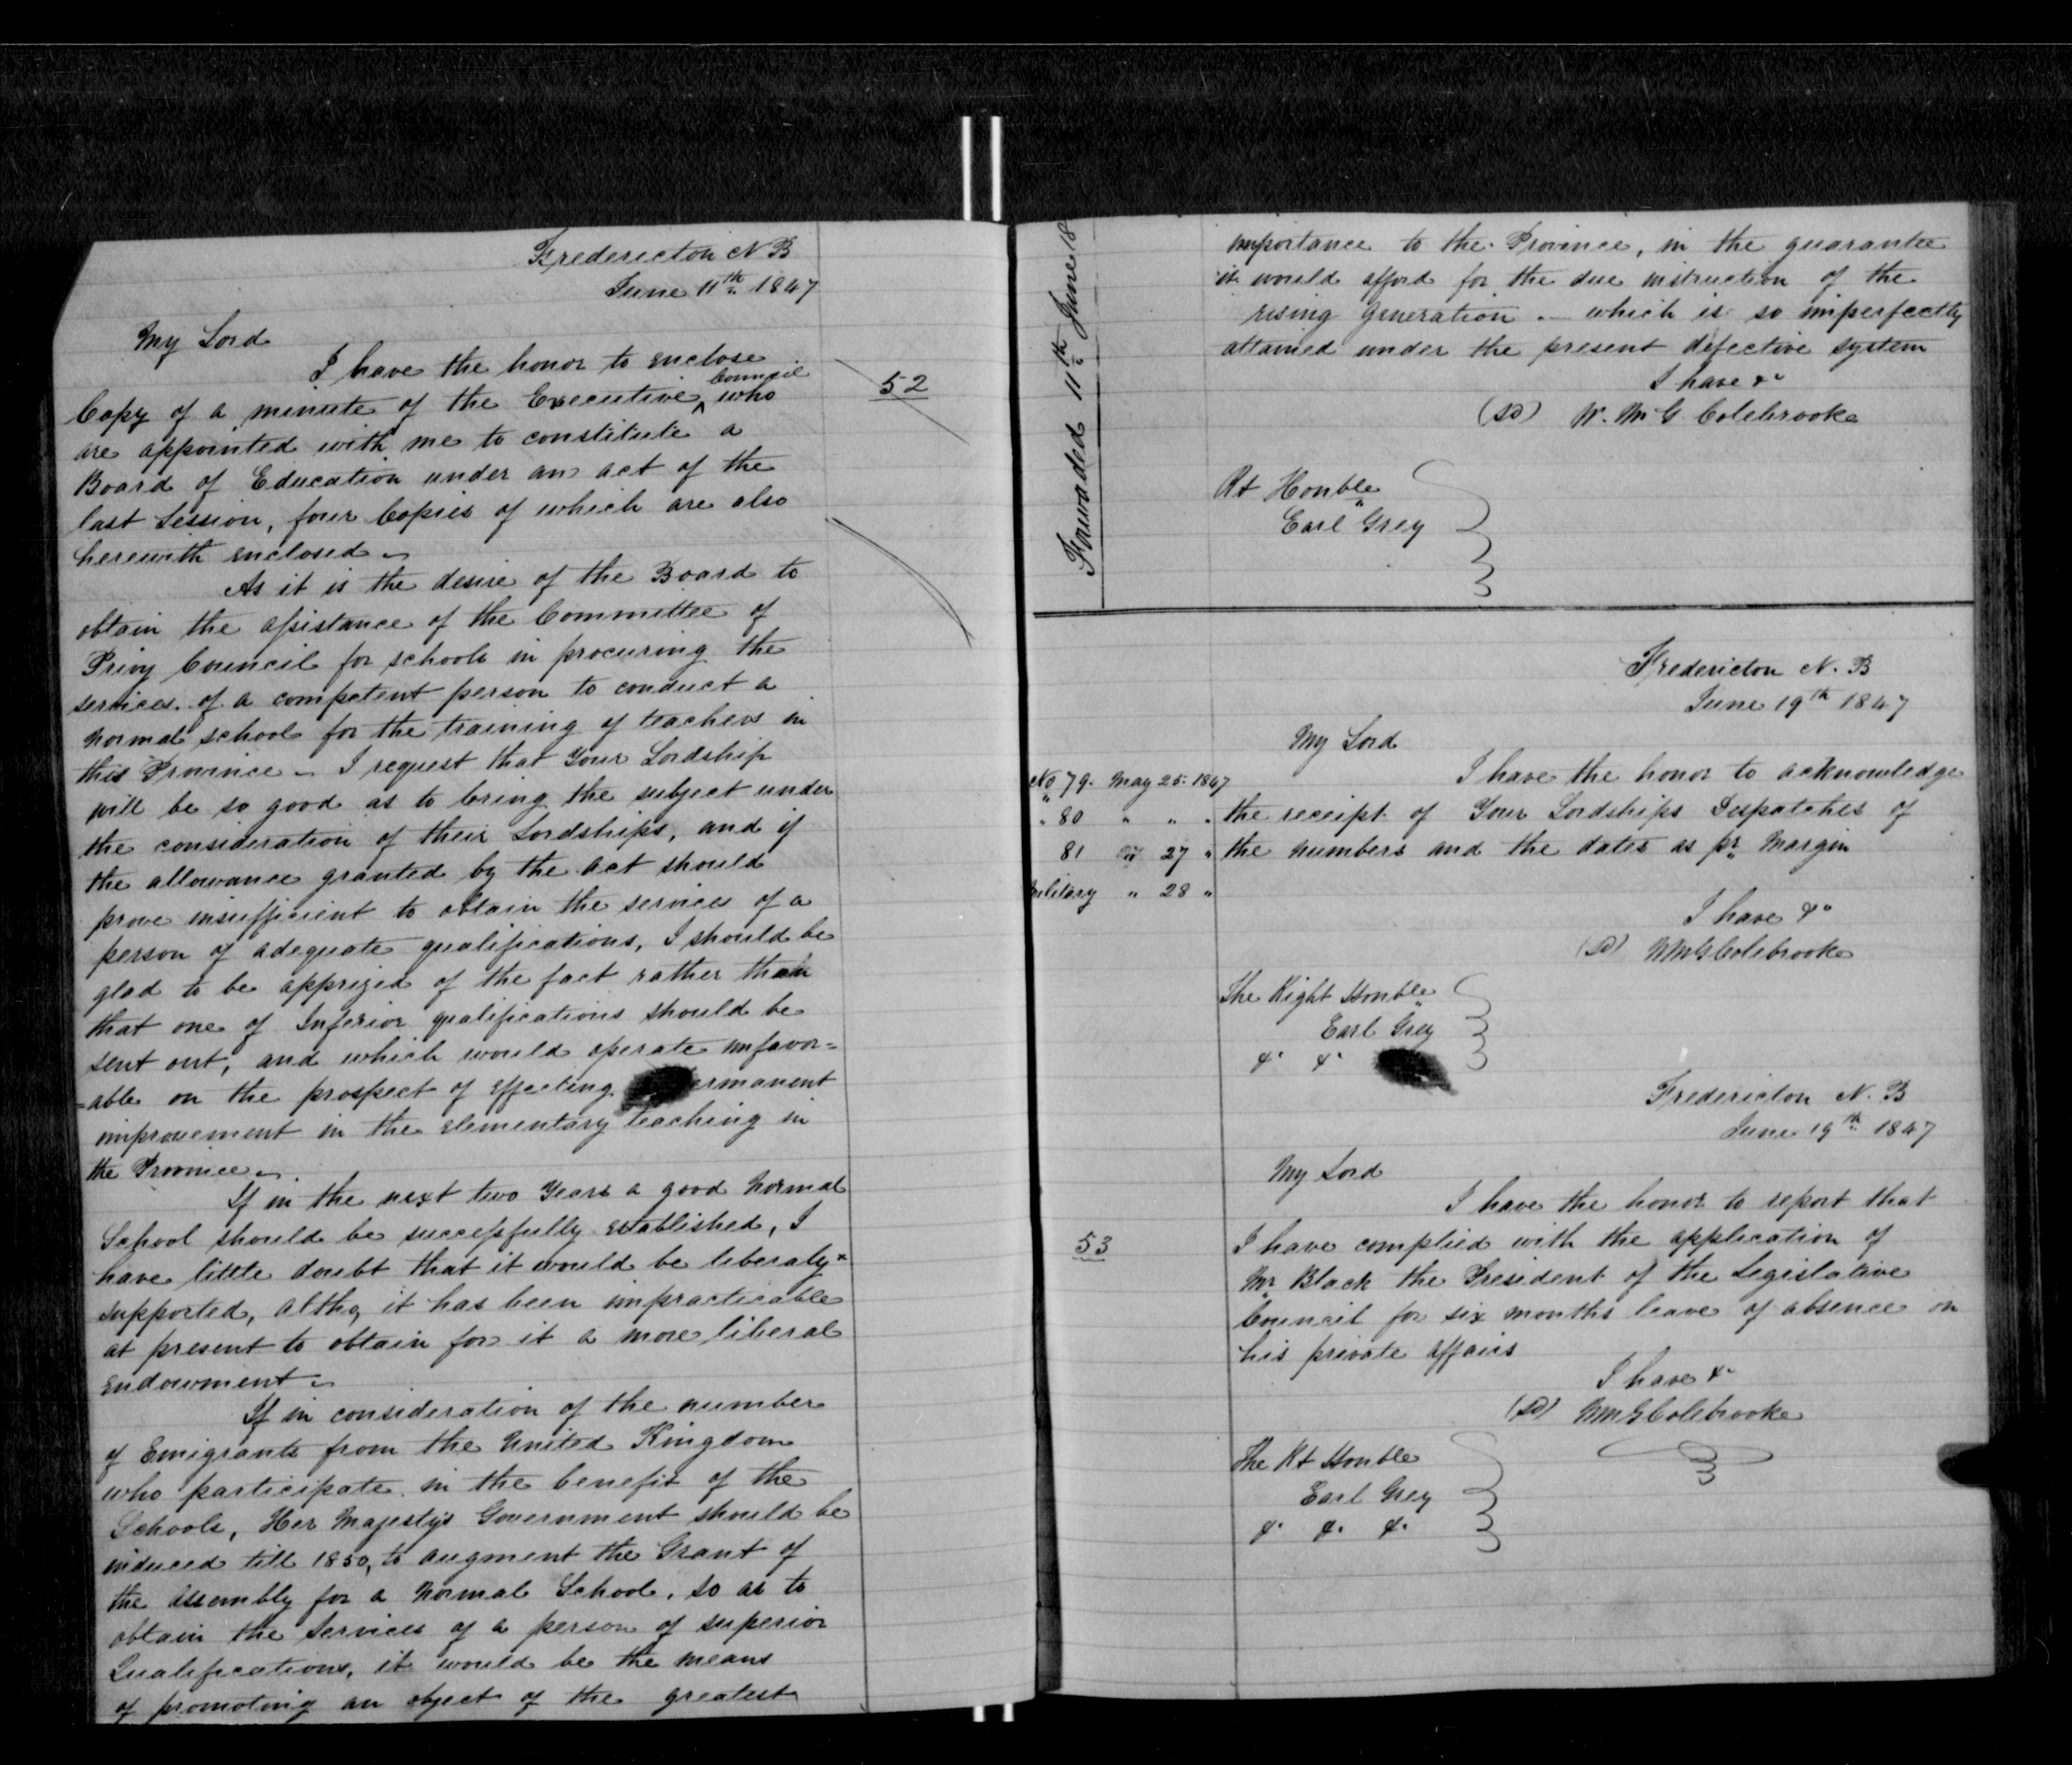 Fredericton N B
June 11th 1847
My Lord
I have the honor to enclose
Copy of a minute of the Executive ^ Council who
are appointed with me to constitute a
Board of Education under an act of the
last Session, four Copies of which are also
herewith enclosed -
As it is the desire of the Board to
obtain the assistance of the Committee of
Privy Council for schools in procuring the
services of a competent person to conduct a
normal school for the training of teachers in
this Province - I request that Your Lordship
will be so good as to bring the subject under
the consideration of their Lordships, and if
the allowance granted by the act should
prove insufficient to obtain the services of a
person of adequate qualifications, I should be
glad to be apprized of the fact rather than
that one of Inferior qualifications should be
sent out, and which would operate unfavor=
=able on the prospect of effecting ermanent
improvement in the elementary teaching in
the Province -
If in the next two Years a good Normal
School should be successfully established, I
have little doubt that it would be liberaly
supported, altho, it has been impracticable
at present to obtain for it a more liberal
endowment -
If in consideration of the number
of Emigrants from the United Kingdom
who participate in the benefit of the
Schools, Her Majestys Government should be
induced till 1850, to augment the Grant of
the Assembly for a Normal School, so as to
obtain the Services of a person of superior
Qualifications, it would be the means
of promoting an object of the greatest
52
Forwaded 11th June 18
importance to the Province, in the guarantee
it would afford for the due instruction of the
rising generation - which is so imperfectly
attained under the present defective system
I have &c
(sd) W. M G. Colebrooke
Rt Honble
Earl Grey
Fredericton N. B
June 19th 1847
My Lord
I have the honor to acknowledge
the receipt of Your Lordships Despatches of
the numbers and the dates as pr Margin
No 79. May 25. 1847
" 80 " " "
81 " 27 "
Military " 28 "
I have &c
(sd) WMGColebrooke
The Right Honble
Earl Grey
&c &c
Fredericton N. B
June 19th 1847
My Lord
I have the honor to report that
53
I have complied with the application of
Mr Black the President of the Legislative
Council for six months leave of absence on
his private affairs
I have &c
(sd) WMGColebrooke
The Rt Honble
Earl Grey
&c &c &c